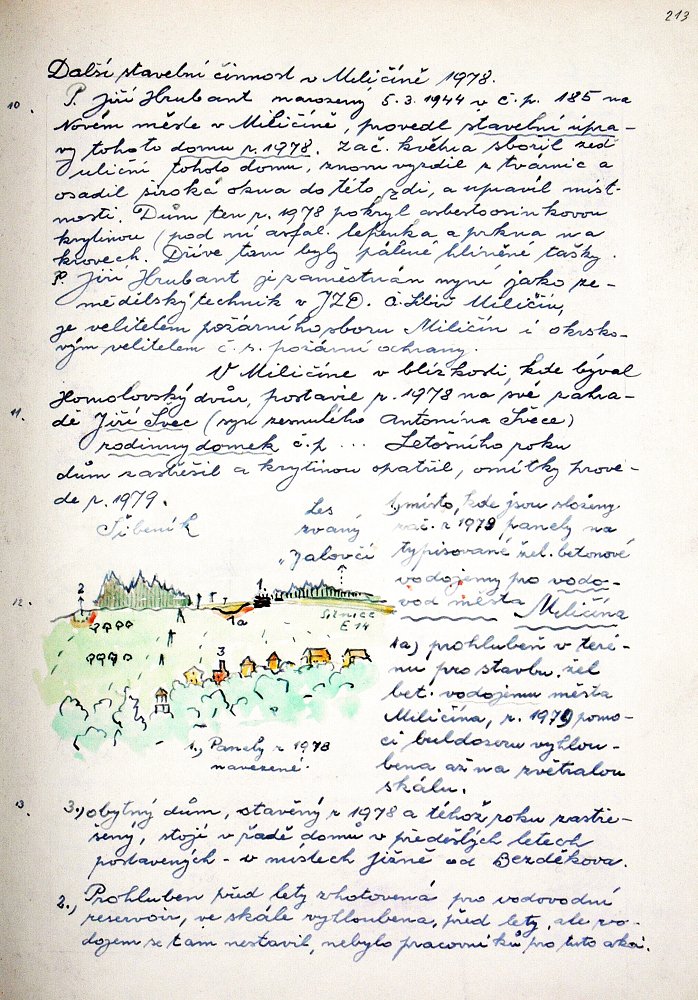 213
Další stavební činnost v Miličíně 1978.
10.
P. Jiří Hrubant narozený 5.3.1944 v č.p. 185 na
Novém městě v Miličíně, provedl stavební úpra-
vy tohoto domu r. 1978. Zač. května sbořil zeď
uliční tohoto domu, znovu vyzdil z tvárnic a
osadil široká okna do této zdi, a upravil míst-
nosti. Dům ten r. 1978 pokryl asbestoosinkovou
krytinou (pod ní asfal. lepenka a prkna na
krovech. Dříve tam byly pálené hliněné tašky.
P. Jiří Hrubant je zaměstnán nyní jako ze-
mědělský technik v JZD. Č. Miličín,
je velitelem požárního sboru Miličín i okrsko-
vým velitelem č. s. požární ochrany.
V Miličíně v blízkosti kde býval
11.
Homolovský dvůr, postavil r. 1978 na své zahra-
dě Jiří Švec (syn zesnulého Antonína Švece)
rodinný domek č.p ... Letošního roku
dům zastřešil a krytinou opatřil, omítky prove-
de r. 1979.
Šibeník
Les
zvaný
"Jalovčí
2
1.
1a
Silnice
E 14
3
1., Panely r 1978
navezené.
12.
1, místo, kde jsou složeny
zač. r 1979 panely na
typisované žel. betonové
vodojemy pro vodo-
vod města Miličína
1a) prohlubeň v teré-
nu pro stavbu žel
bet. vodojemu města
Miličína, r. 1979 pomo-
cí buldozeru vyhlou-
bena až na zvětralou
skálu.
13.
3.) obytný dům, stavěný r 1978 a téhož roku zastře-
šený, stojí v řadě domů v předešlých letech
postavených - v místech jižně od Bezděkova.
2., Prohlubeň před lety zhotovená pro vodovodní
reservoir, ve skále vyhloubena, před lety, ale vo-
dojem se tam nestavil, nebylo pracovníků pro tuto akci.